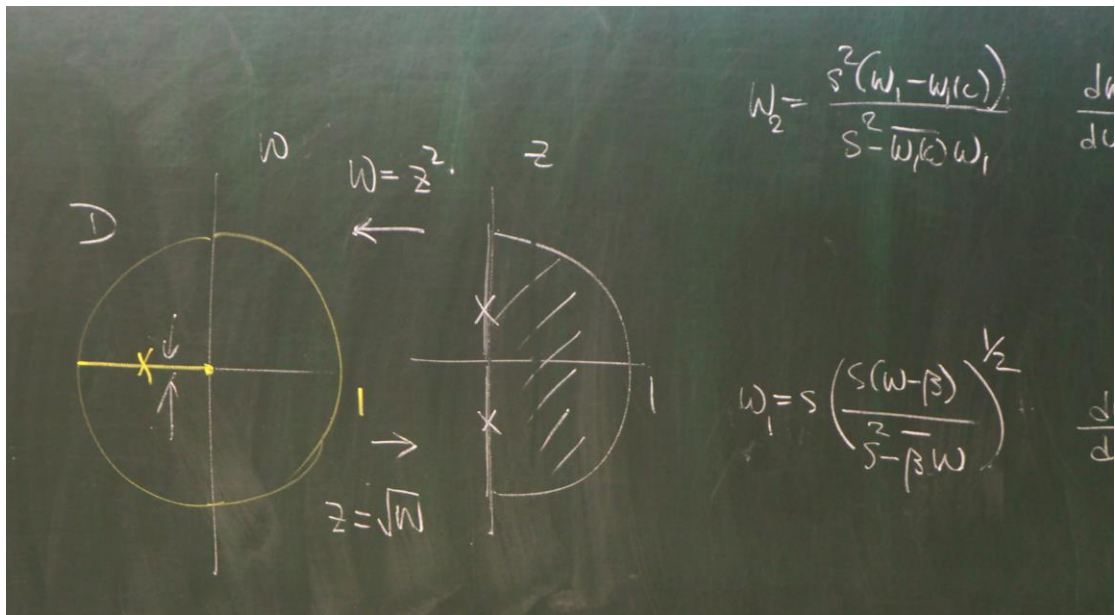 W
Z
D
W = z²
1
1
z = √W
W₂ = s²(W₁ - W₁(c)) / s² - \overline{W₁(c)} W₁
dW
dW₁ = s (s(W - β) / s² - \overline{β} W)^{1/2}
d
d